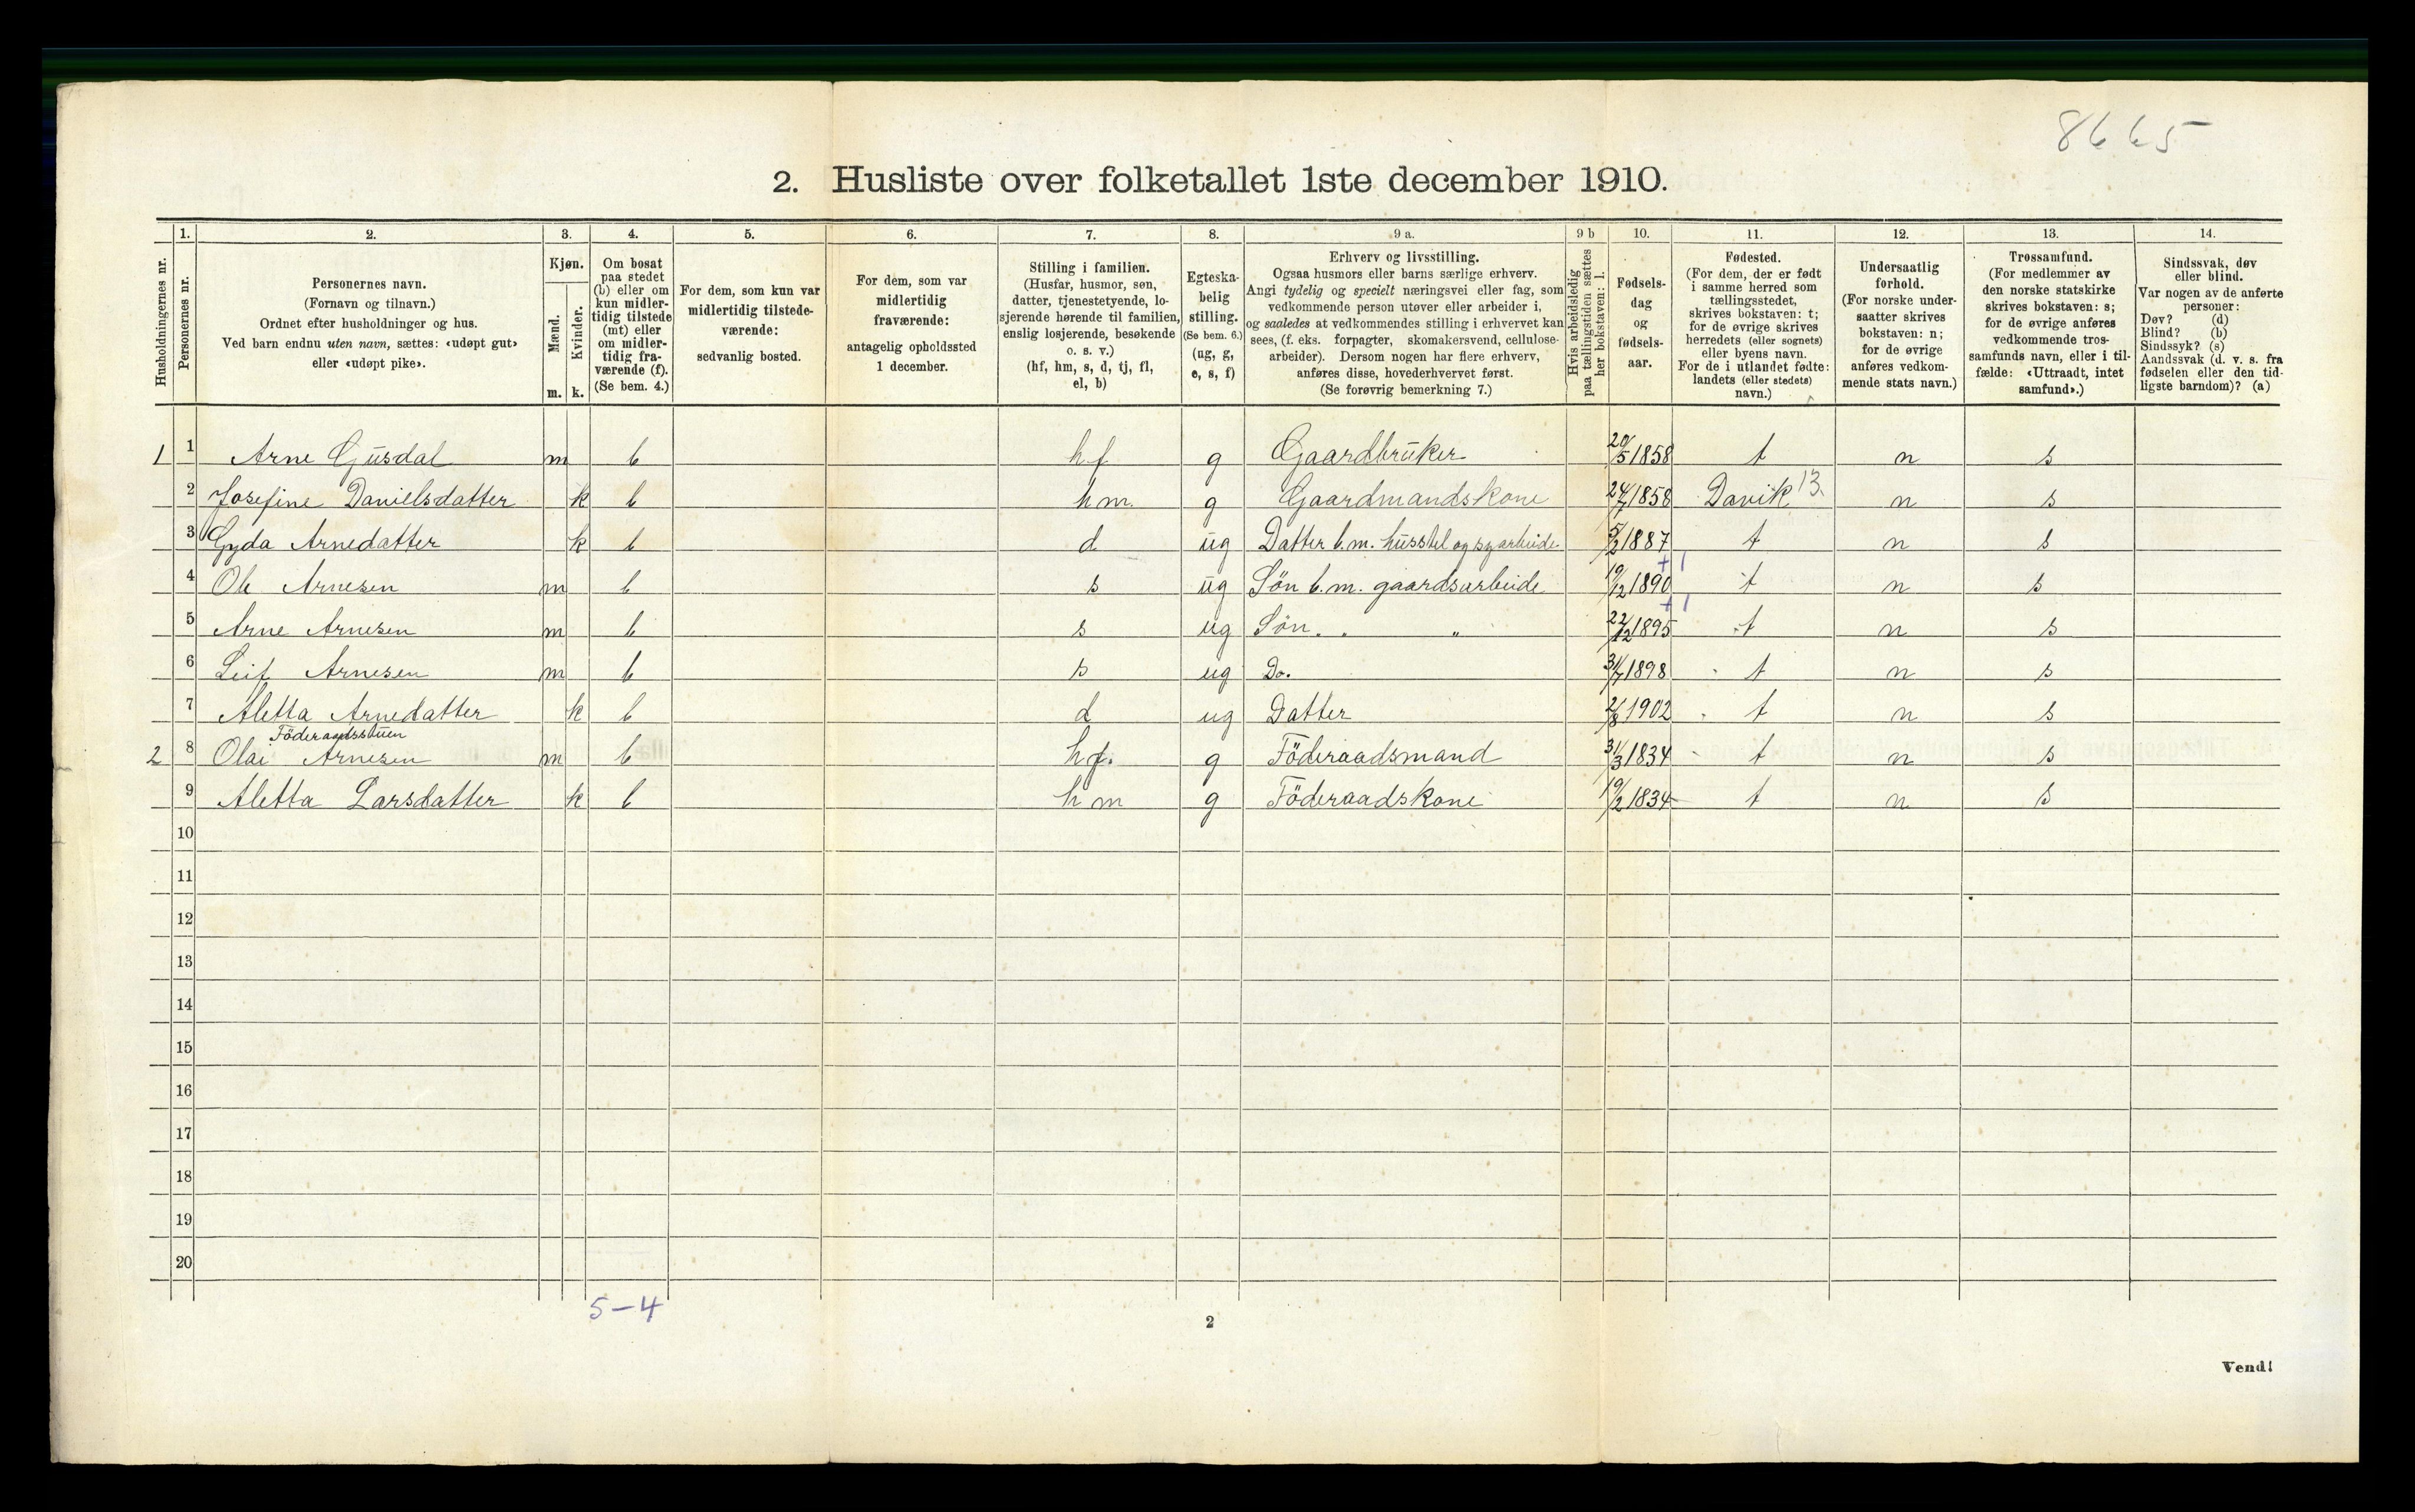 8665
2. Husliste over folketallet 1ste december 1910.
1. 2. 3. 4. 5. 6. 7. 8. 9 a. 9 b 10. 11. 12. 13. 14.
Husholdningernes nr.
Personernes nr.
Personernes navn.
(Fornavn og tilnavn.)
Ordnet efter husholdninger og hus.
Ved barn endnu uten navn, sættes: «udøpt gut»
eller «udøpt pike».
Kjøn.
Mænd.
Kvinder.
m. k.
Om bosat
paa stedet
(b) eller om
kun midler-
tidig tilstede
(mt) eller
om midler-
tidig fra-
værende (f).
(Se bem. 4.)
For dem, som kun var
midlertidig tilstede-
værende:
sedvanlig bosted.
For dem, som var
midlertidig
fraværende:
antagelig opholdssted
1 december.
Stilling i familien.
(Husfar, husmor, søn,
datter, tjenestetyende, lo-
sjerende hørende til familien,
enslig losjerende, besøkende
o. s. v.)
(hf, hm, s, d, tj, fl,
el, b)
Egteska-
belig
stilling.
(Se bem. 6.)
(ug, g,
e, s, f)
Erhverv og livsstilling.
Ogsaa husmors eller barns særlige erhverv.
Angi tydelig og specielt næringsvei eller fag, som
vedkommende person utøver eller arbeider i,
og saaledes at vedkommendes stilling i erhvervet kan
sees, (f. eks. forpagter, skomakersvend, cellulose-
arbeider). Dersom nogen har flere erhverv,
anføres disse, hovederhvervet først.
(Se forøvrig bemerkning 7.)
Hvis arbeidsledig
paa tællingstiden sættes
her bokstaven: l.
Fødsels-
dag
og
fødsels-
aar.
Fødested.
(For dem, der er født
i samme herred som
tællingsstedet,
skrives bokstaven: t;
for de øvrige skrives
herredets (eller sognets)
eller byens navn.
For de i utlandet fødte:
landets (eller stedets)
navn.)
Undersaatlig
forhold.
(For norske under-
saatter skrives
bokstaven: n;
for de øvrige
anføres vedkom-
mende stats navn.)
Trossamfund.
(For medlemmer av
den norske statskirke
skrives bokstaven: s;
for de øvrige anføres
vedkommende tros-
samfunds navn, eller i til-
fælde: «Uttraadt, intet
samfund».)
Sindssvak, døv
eller blind.
Var nogen av de anførte
personer:
Døv? (d)
Blind? (b)
Sindssyk? (s)
Aandssvak (d. v. s. fra
fødselen eller den tid-
ligste barndom)? (a)
1 1 Arne Gusdal m b hf g Gaardbruker 20/5 1858 t n s
2 Josefine Danielsdatter k b hm. g Gaardmandskone 24/7 1858 Davik 13. n s
3 Gyda Arnedatter k b d ug Datter b.m. husstel og syarbeide 5/2 1887 t n s
+ 1
4 Ole Arnesen m b s ug Sön b.m. gaardsarbeide 19/12 1890 t n s
+ 1
5 Arne Arnesen m b s ug Sön. . „ 22/12 1895 t n s
6 Leif Arnesen m b s ug Do. 31/7 1898 t n s
7 Aletta Arnedatter k b d ug Datter 2/8 1902 t n s
Föderaadsstuen
2 8 Olai Arnesen m b hf. g Föderaadsmand 31/3 1834 t n s
9 Aletta Larsdatter k b hm g Föderaadskone 19/2 1834 t n s
10
11
12
13
14
15
16
17
18
19
20
5-4
2
Vend!